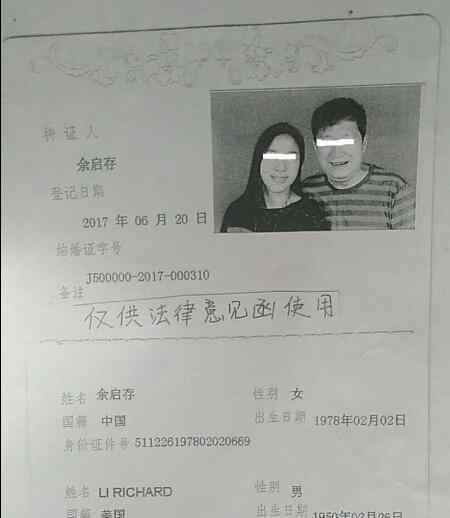 持证人
余启存
登记日期
2017 年 06 月 20 日
结婚证字号
J500000-2017-000310
备注
仅供法律意见函使用
姓名 余启存 性别 女
国籍 中国 出生日期 1978年02月02日
身份证件号 511226197802020669
姓名 LI RICHARD 性别 男
国籍 美国 出生日期 1950年02月26日